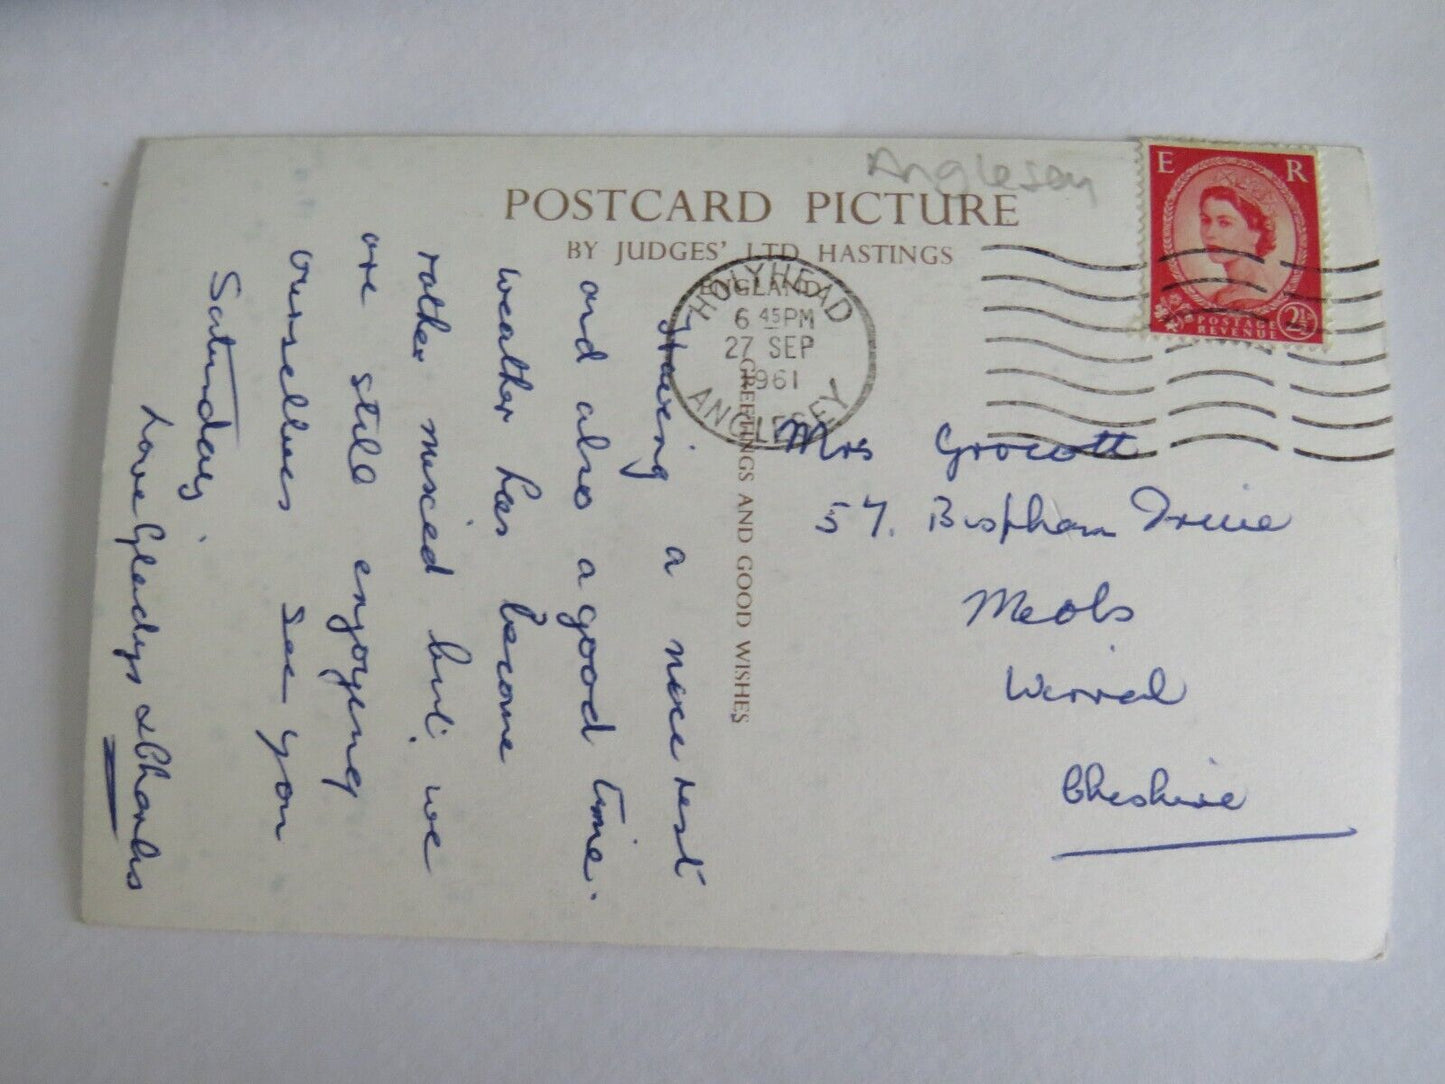 Anglesey
POSTCARD PICTURE
BY JUDGES' LTD HASTINGS
ENGLAND
GREETINGS AND GOOD WISHES
E R
POSTAGE
REVENUE
2½
HOLYHEAD
6 45PM
27 SEP
1961
ANGLESEY
Having a nice rest
and also a good time.
weather has become
rather mixed but we
are still enjoying
ourselves see you
Saturday.
Love Gladys & Charles
Mrs Grocott
57. Bispham Drive
Meols
Wirral
Cheshire